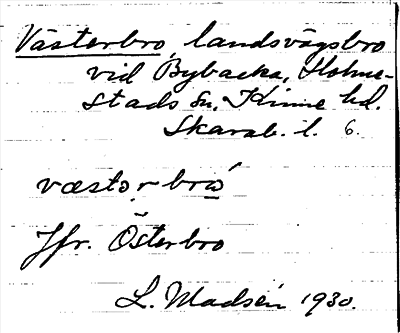 Västerbro, landsvägsbro
vid Bybacka, Holme-
stads sn, Kinne hd.
Skarab. l. 6.
væstərbró
Jfr. Österbro
L. Madsén 1930.